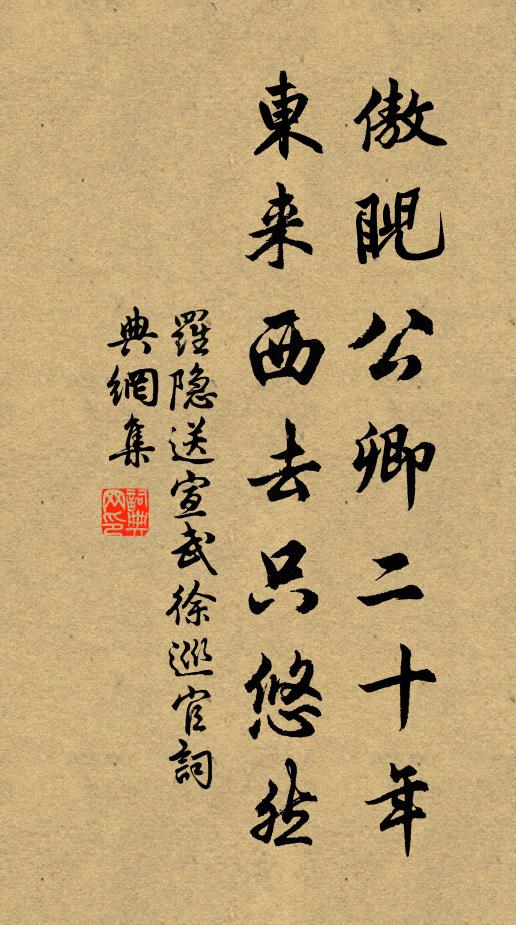 傲睨公卿二十年
東来西去只悠然
羅隐送宣武徐巡官詞
典網集
詞典网印